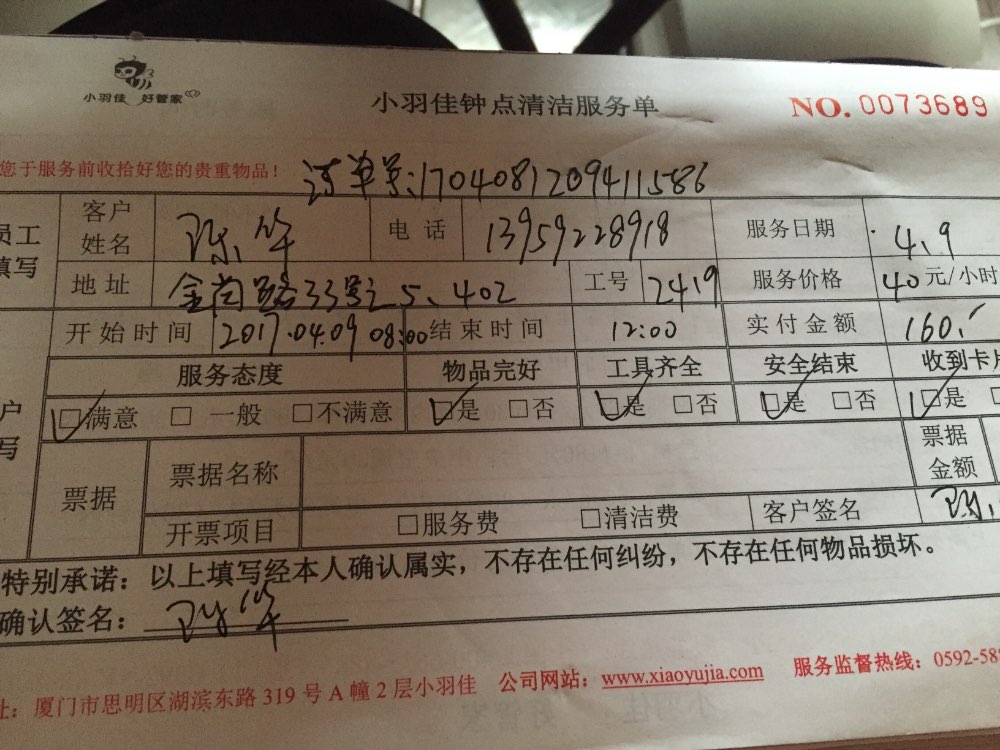 小羽佳 好管家
小羽佳钟点清洁服务单 NO. 0073689
您于服务前收拾好您的贵重物品！
订单号:1704081209411586
员工填写 客户姓名 陈华 电话 13959228918 服务日期 4.9
地址 金尚路33号之5、402 工号 2419 服务价格 40元/小时
开始时间 2017.04.09 08:00 结束时间 12:00 实付金额 160.
服务态度 物品完好 工具齐全 安全结束 收到卡片
户写 □满意 □一般 □不满意 □是 □否 □是 □否 □是 □否 □是
票据 票据名称 票据金额
开票项目 □服务费 □清洁费 客户签名 陈
特别承诺：以上填写经本人确认属实，不存在任何纠纷，不存在任何物品损坏。
确认签名：陈华
址：厦门市思明区湖滨东路319号A幢2层小羽佳 公司网站：www.xiaoyujia.com 服务监督热线：0592-588